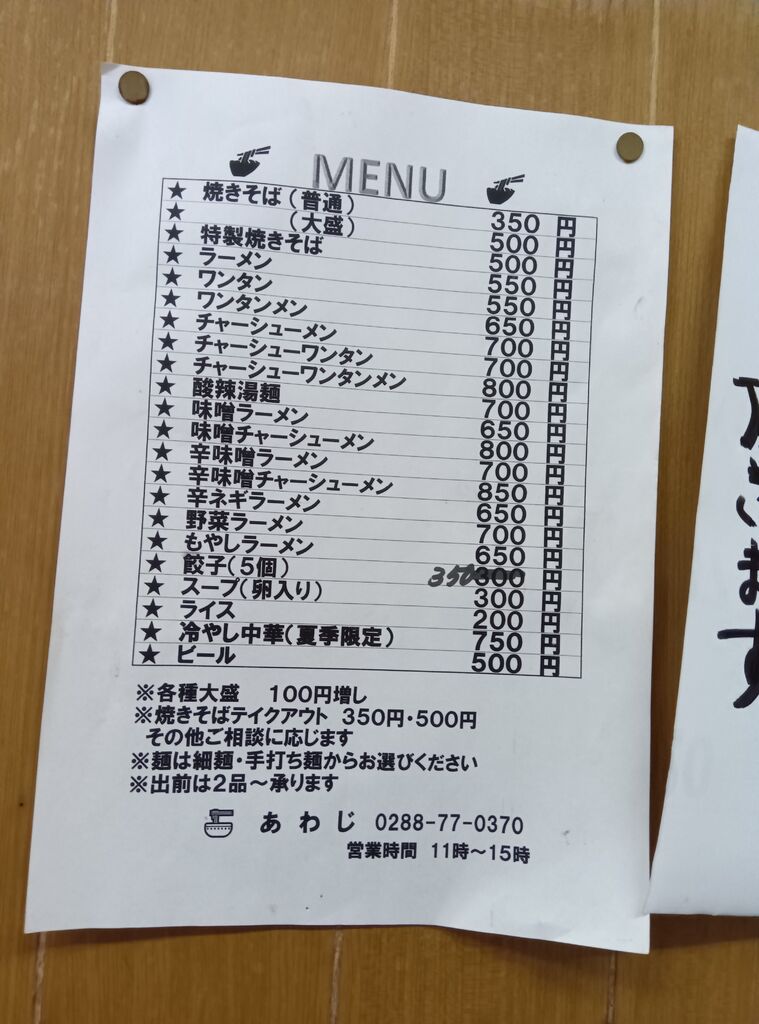 MENU
★ 焼きそば（普通） 350 円
★ （大盛） 500 円
★ 特製焼きそば 500 円
★ ラーメン 550 円
★ ワンタン 550 円
★ ワンタンメン 650 円
★ チャーシューメン 700 円
★ チャーシューワンタン 700 円
★ チャーシューワンタンメン 800 円
★ 酸辣湯麺 700 円
★ 味噌ラーメン 650 円
★ 味噌チャーシューメン 800 円
★ 辛味噌ラーメン 700 円
★ 辛味噌チャーシューメン 850 円
★ 辛ネギラーメン 650 円
★ 野菜ラーメン 700 円
★ もやしラーメン 650 円
★ 餃子（５個） 350 300 円
★ スープ（卵入り） 300 円
★ ライス 200 円
★ 冷やし中華（夏季限定） 750 円
★ ビール 500 円
※各種大盛 100円増し
※焼きそばテイクアウト 350円・500円
その他ご相談に応じます
※麺は細麺・手打ち麺からお選びください
※出前は２品～承ります
あわじ 0288-77-0370
営業時間 11時～15時
ます